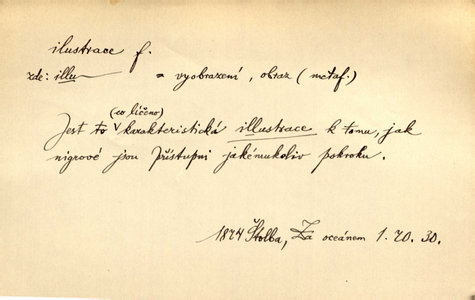 ilustrace f.
zde: illu
= vyobrazení, obraz (metaf.)
(co líčeno)
Jest to V karakteristická illustrace k tomu, jak
nigrové jsou přístupni jakémukoliv pokroku.
1874 Štolba, Za oceánem 1. 20. 30.